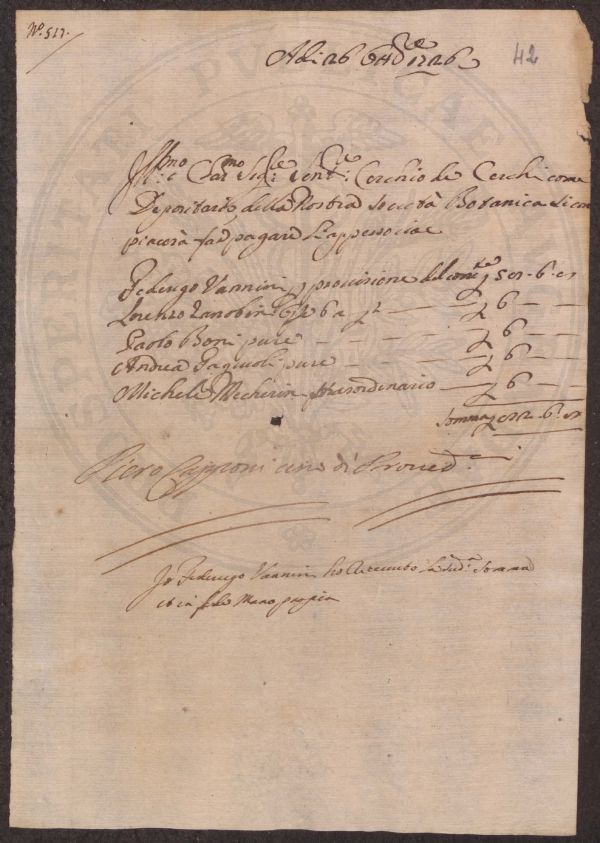 N.º 527.
42
Adi 26 8bre 1726
Ill.mo e Clar.mo Sig.re Sen.re Cerchio de Cerchi come
Depositario della Nostra Società Botanica si com
piacerà far pagare l'appresso cioè
Federigo Vannini p provvisione
Lorenzo 6 — —
Paolo Boni pure — — — — — 6 — —
Andrea Fagiuoli pure — — — — 6 — —
Michele Mecherini straordinario — 6 — —
Somma
Piero Capponi uno di Proved.ri
Io Federigo Vannini ho ricevuto la sud.a somma
et in fede Mano propria